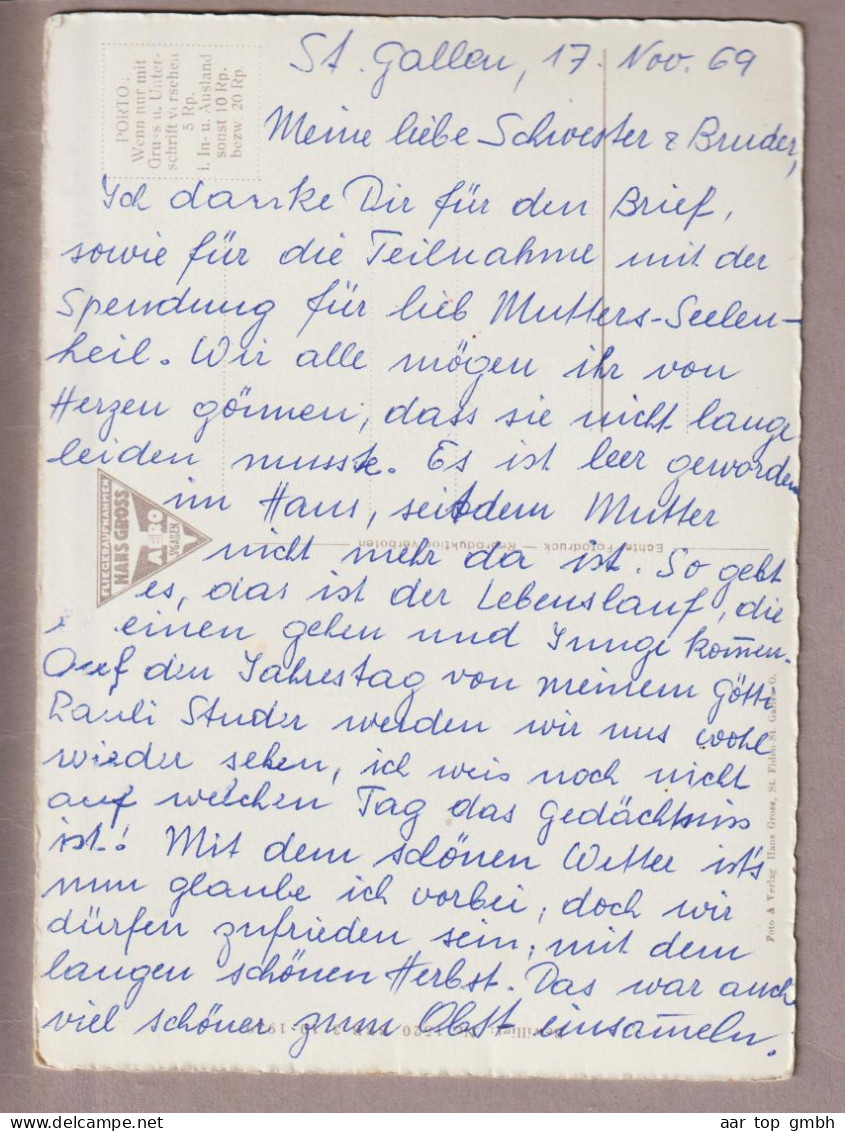 St. Gallen, 17. Nov. 69
Meine liebe Schwester & Bruder,
Ich danke Dir für den Brief,
sowie für die Teilnahme mit der
Spendung für lieb Mutters-Seelen-
heil. Wir alle mögen ihr von
Herzen gönnen, dass sie nicht lange
leiden musste. Es ist leer geworden
im Haus, seitdem Mutter
nicht mehr da ist. So geht
es, das ist der Lebenslauf, die
einen gehen und Junge kom̄en.
Auf den Jahrestag von meinem Götti
Pauli Studer werden wir uns wohl
wieder sehen, ich weis noch nicht
auf welchen Tag das Gedächtniss
ist! Mit dem schönen Wetter ist's
nun glaube ich vorbei, doch wir
dürfen zufrieden sein, mit dem
langen schönen Herbst. Das war auch
viel schöner zum Obst einsam̄eln.
PORTO:
Wenn nur mit
Gruss u. Unter-
schrift versehen
5 Rp.
i. In- u. Ausland
sonst 10 Rp.
bezw. 20 Rp.
FLIEGERAUFNAHMEN
HANS GROSS
AERO
ST.GALLEN
Echter Fotodruck — Reproduktion verboten
Foto & Verlag Hans Gross, St. Fiden-St. Gallen O.
aar top gmbh